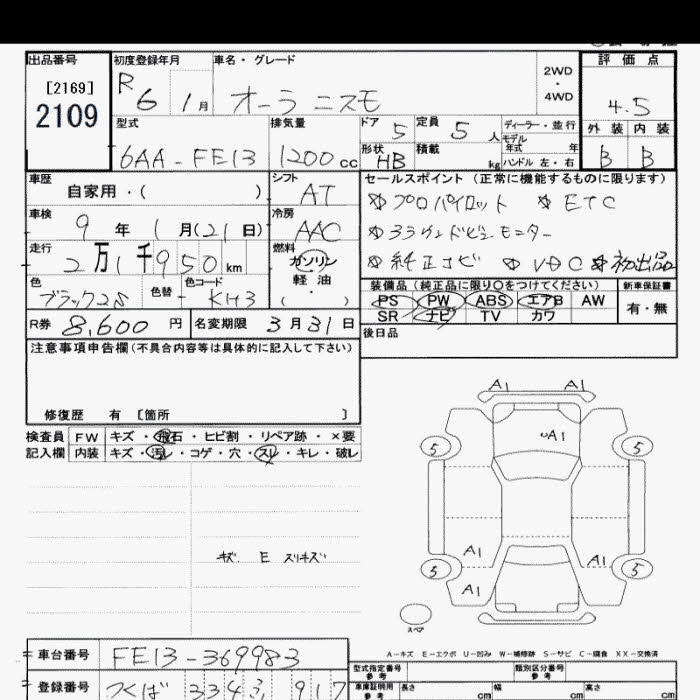 出品番号 初度登録年月 車名・グレード 2WD・4WD 評価点
[2169]
2109
R 6 1月 オーラ ニスモ 4.5
型式 排気量 ドア 5 定員 5人 ディーラー・並行 外装 内装
モデル年式 年
6AA-FE13 1200cc 形状 HB 積載 kg ハンドル 左・右 B B
車歴 シフト セールスポイント(正常に機能するものに限ります)
自家用・( ) AT ☆プロパイロット ☆ETC
車検 9年 1月(21日) 冷房 AAC
走行 2万1千950km 燃料 ガソリン・軽油
☆純正ナビ ☆VDC ☆初出品
色 ブラック2S 色替 - 色コード KH3 装備品(純正品に限り○をつけてください) 新車保証書
PS PW ABS エアB AW 有・無
SR ナビ TV カワ
R券 8,600円 名変期限 3月31日 後日品
注意事項申告欄(不具合内容等は具体的に記入して下さい)
修復歴 有 [箇所 ]
検査員 FW キズ・飛石・ヒビ割・リペア跡・×要
記入欄 内装 キズ・汚レ・コゲ・穴・スレ・キレ・破レ
A1 A1
A1
5 5
キズ E スリキズ
A1 A1
5 5
A1
スペア
A-キズ E-エクボ U-凹み W-補修跡 S-サビ C-腐食 XX-交換済
車台番号 FE13-369983 型式指定番号 参考 類別区分番号 参考
登録番号 つくば 334 917 車庫証明用 参考 長さ cm 幅 cm 高さ cm